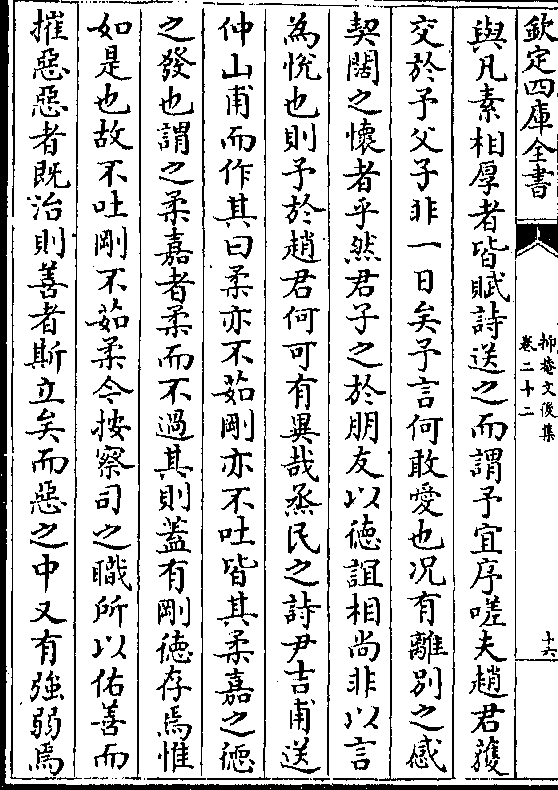 欽定四庫全書
抑菴文後集
卷二十二
十六
與凡素相厚者皆賦詩送之而謂予宜序嗟夫趙君獲
交於予父子非一日矣予言何敢愛也况有離别之感
契闊之懷者乎然君子之於朋友以徳誼相尚非以言
為悅也則予於趙君何可有異哉烝民之詩尹吉甫送
仲山甫而作其曰柔亦不茹剛亦不吐皆其柔嘉之徳
之發也謂之柔嘉者柔而不過其則蓋有剛徳存焉惟
如是也故不吐剛不茹柔今按察司之職所以佑善而
摧惡惡者既治則善者斯立矣而惡之中又有強弱焉